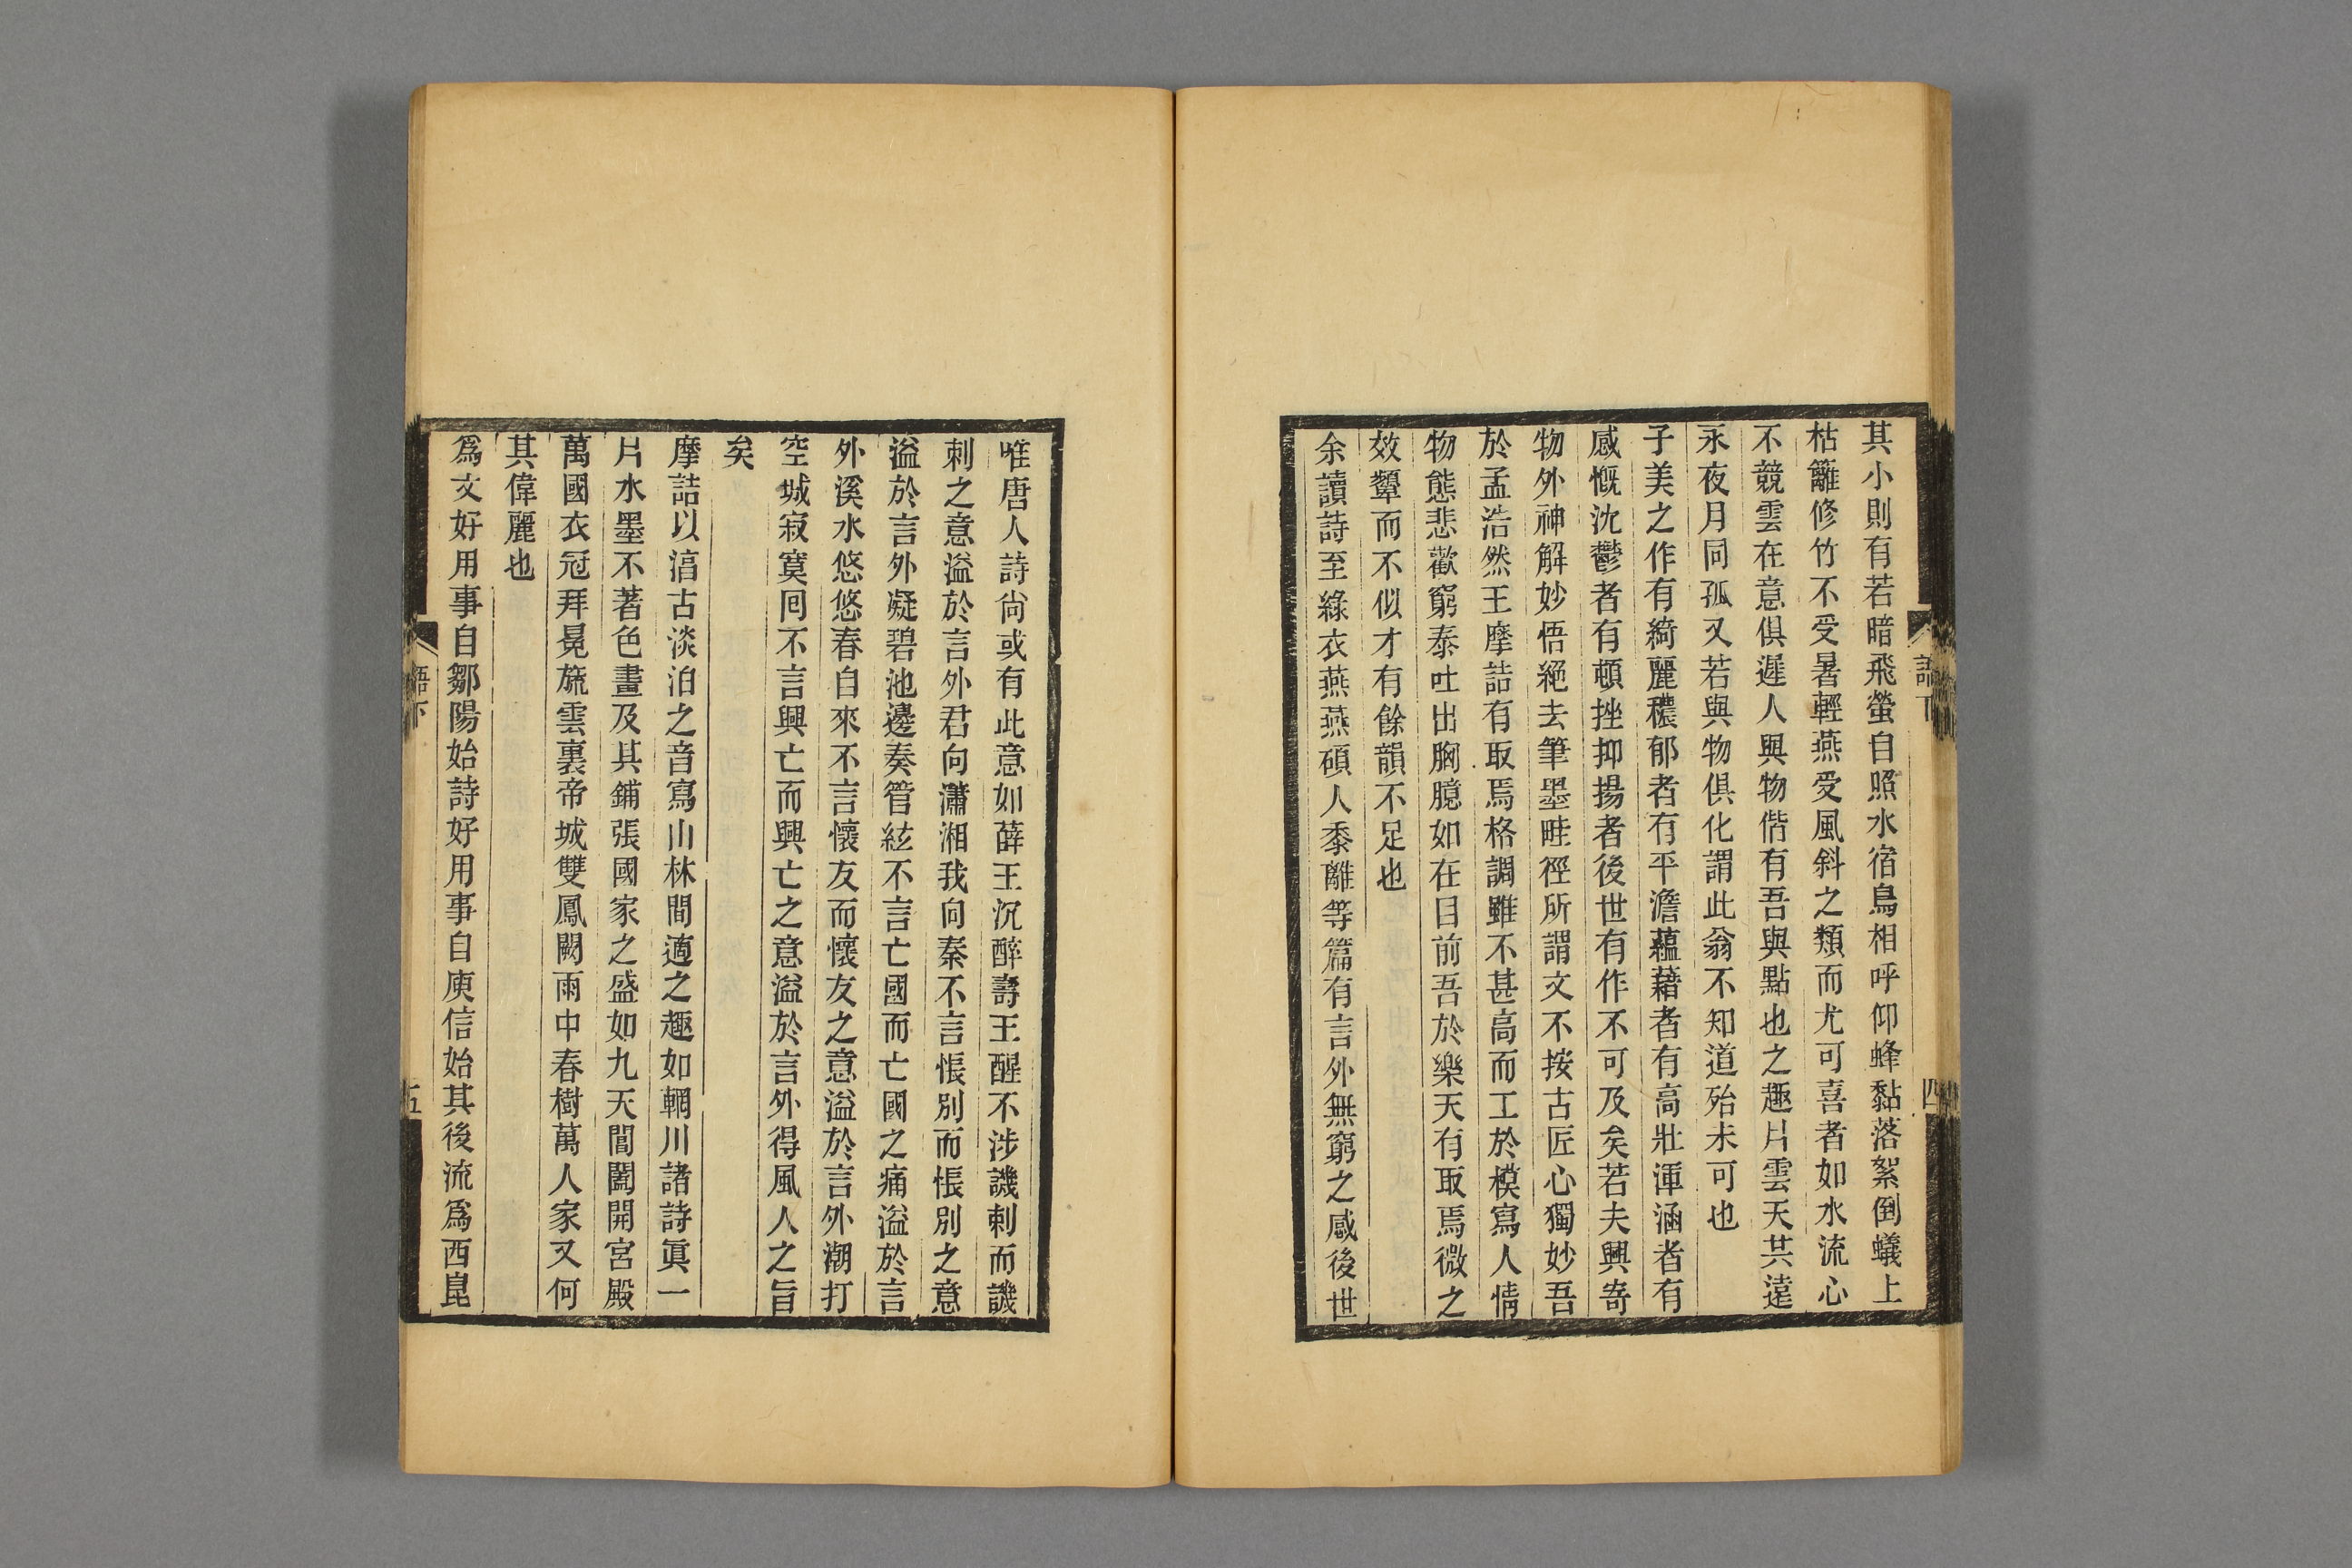 其小則有若暗飛螢自照水宿鳥相呼仰蜂黏落絮倒蟻上
枯籬修竹不受暑輕燕受風斜之類而尤可喜者如水流心
不競雲在意俱遲人與物偕有吾與點也之趣片雲天共遠
永夜月同孤又若與物俱化謂此翁不知道殆未可也
子美之作有綺麗穠郁者有平澹蘊藉者有高壯渾涵者有
感慨沈鬱者有頓挫抑揚者後世有作不可及矣若夫興寄
物外神解妙悟絕去筆墨畦徑所謂文不按古匠心獨妙吾
於孟浩然王摩詰有取焉格調雖不甚高而工於模寫人情
物態悲歡窮泰吐出胸臆如在目前吾於樂天有取焉微之
效顰而不似才有餘韻不足也
余讀詩至綠衣燕燕碩人黍離等篇有言外無窮之感後世
唯唐人詩尙或有此意如薛王沉醉壽王醒不涉譏刺而譏
刺之意溢於言外君向瀟湘我向秦不言悵別而悵別之意
溢於言外凝碧池邊奏管絃不言亡國而亡國之痛溢於言
外溪水悠悠春自來不言懷友而懷友之意溢於言外潮打
空城寂寞囘不言興亡而興亡之意溢於言外得風人之旨
矣
摩詰以淸古淡泊之音寫山林閒適之趣如輞川諸詩眞一
片水墨不著色畫及其鋪張國家之盛如九天閶闔開宮殿
萬國衣冠拜冕旒雲裏帝城雙鳳闕雨中春樹萬人家又何
其偉麗也
爲文好用事自鄒陽始詩好用事自庾信始其後流爲西崑